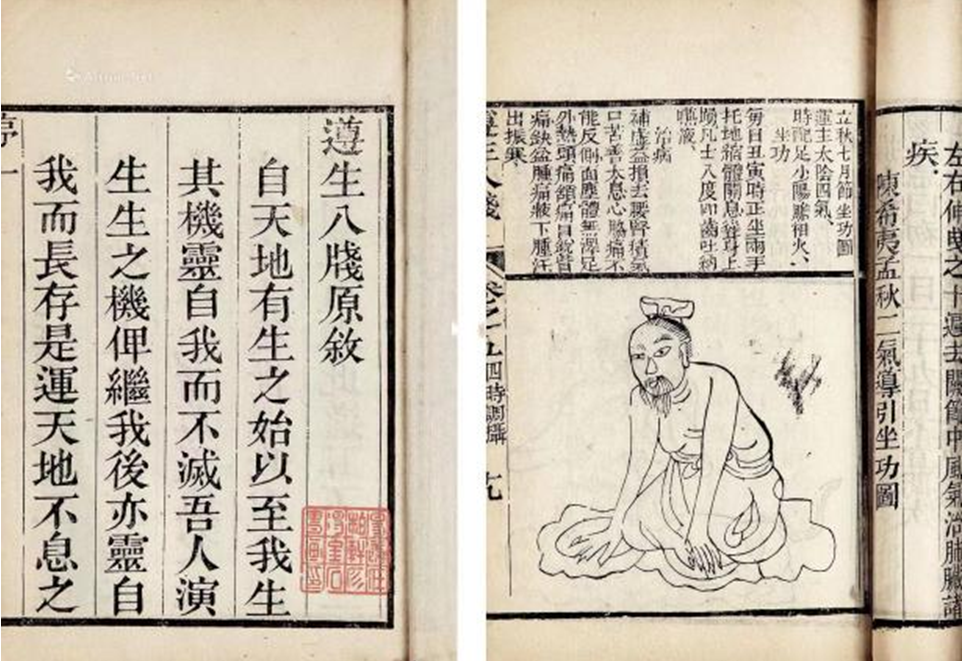 遵生八牋原敘
自天地有生之始以至我生
其機靈自我而不滅吾人演
生生之機俾繼我後亦靈自
我而長存是運天地不息之
左右伸曳之十遍去關節中風氣治肺臟諸
疾、
陳希夷孟秋二氣導引坐功圖
立秋七月節坐功圖
運主太陰四氣、
時配足少陽膽相火、
坐功
每日丑寅時正坐兩手
托地縮體閉息聳身上
踴凡七八度叩齒吐納
嚥液、
治病
補虛益損去腰腎積氣
口苦善太息心脇痛不
能反側面塵體無澤足
外熱頭痛頷痛目銳眥
痛缺盆腫痛腋下腫汗
出振寒、
遵生八牋 卷之五四時調攝 十九